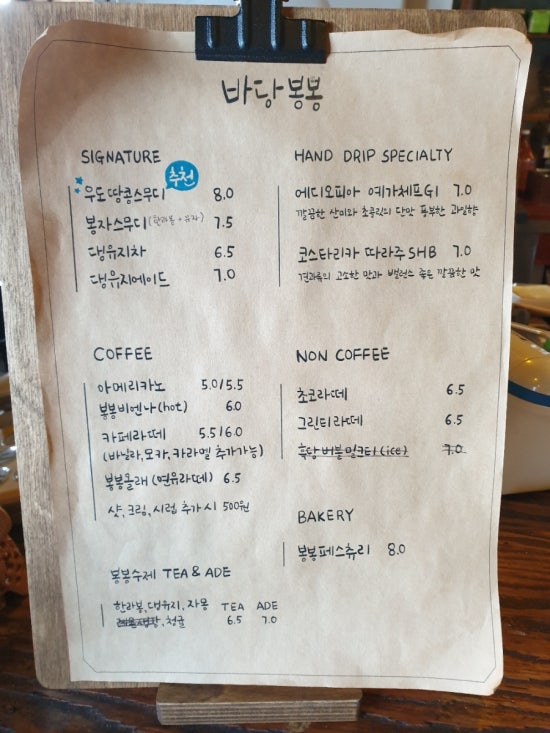 바당봉봉
SIGNATURE
추천
우도땅콩스무디 8.0
봉자스무디 (한라봉+유자) 7.5
댕유지차 6.5
댕유지에이드 7.0
HAND DRIP SPECIALTY
에디오피아 예가체프G1 7.0
깔끔한 산미와 초콜릿의 단맛 풍부한 과일향
코스타리카 따라주SHB 7.0
견과류의 고소한 맛과 밸런스 좋은 깔끔한 맛
COFFEE
아메리카노 5.0/5.5
봉봉비엔나(hot) 6.0
카페라떼 5.5/6.0
(바닐라,모카,카라멜 추가가능)
봉봉콜래 (연유라떼) 6.5
샷,크림,시럽 추가시 500원
NON COFFEE
초코라떼 6.5
그린티라떼 6.5
흑당버블밀크티(ice) 7.0
BAKERY
봉봉페스츄리 8.0
봉봉수제 TEA & ADE
한라봉,댕유지,자몽 TEA ADE
청귤 6.5 7.0